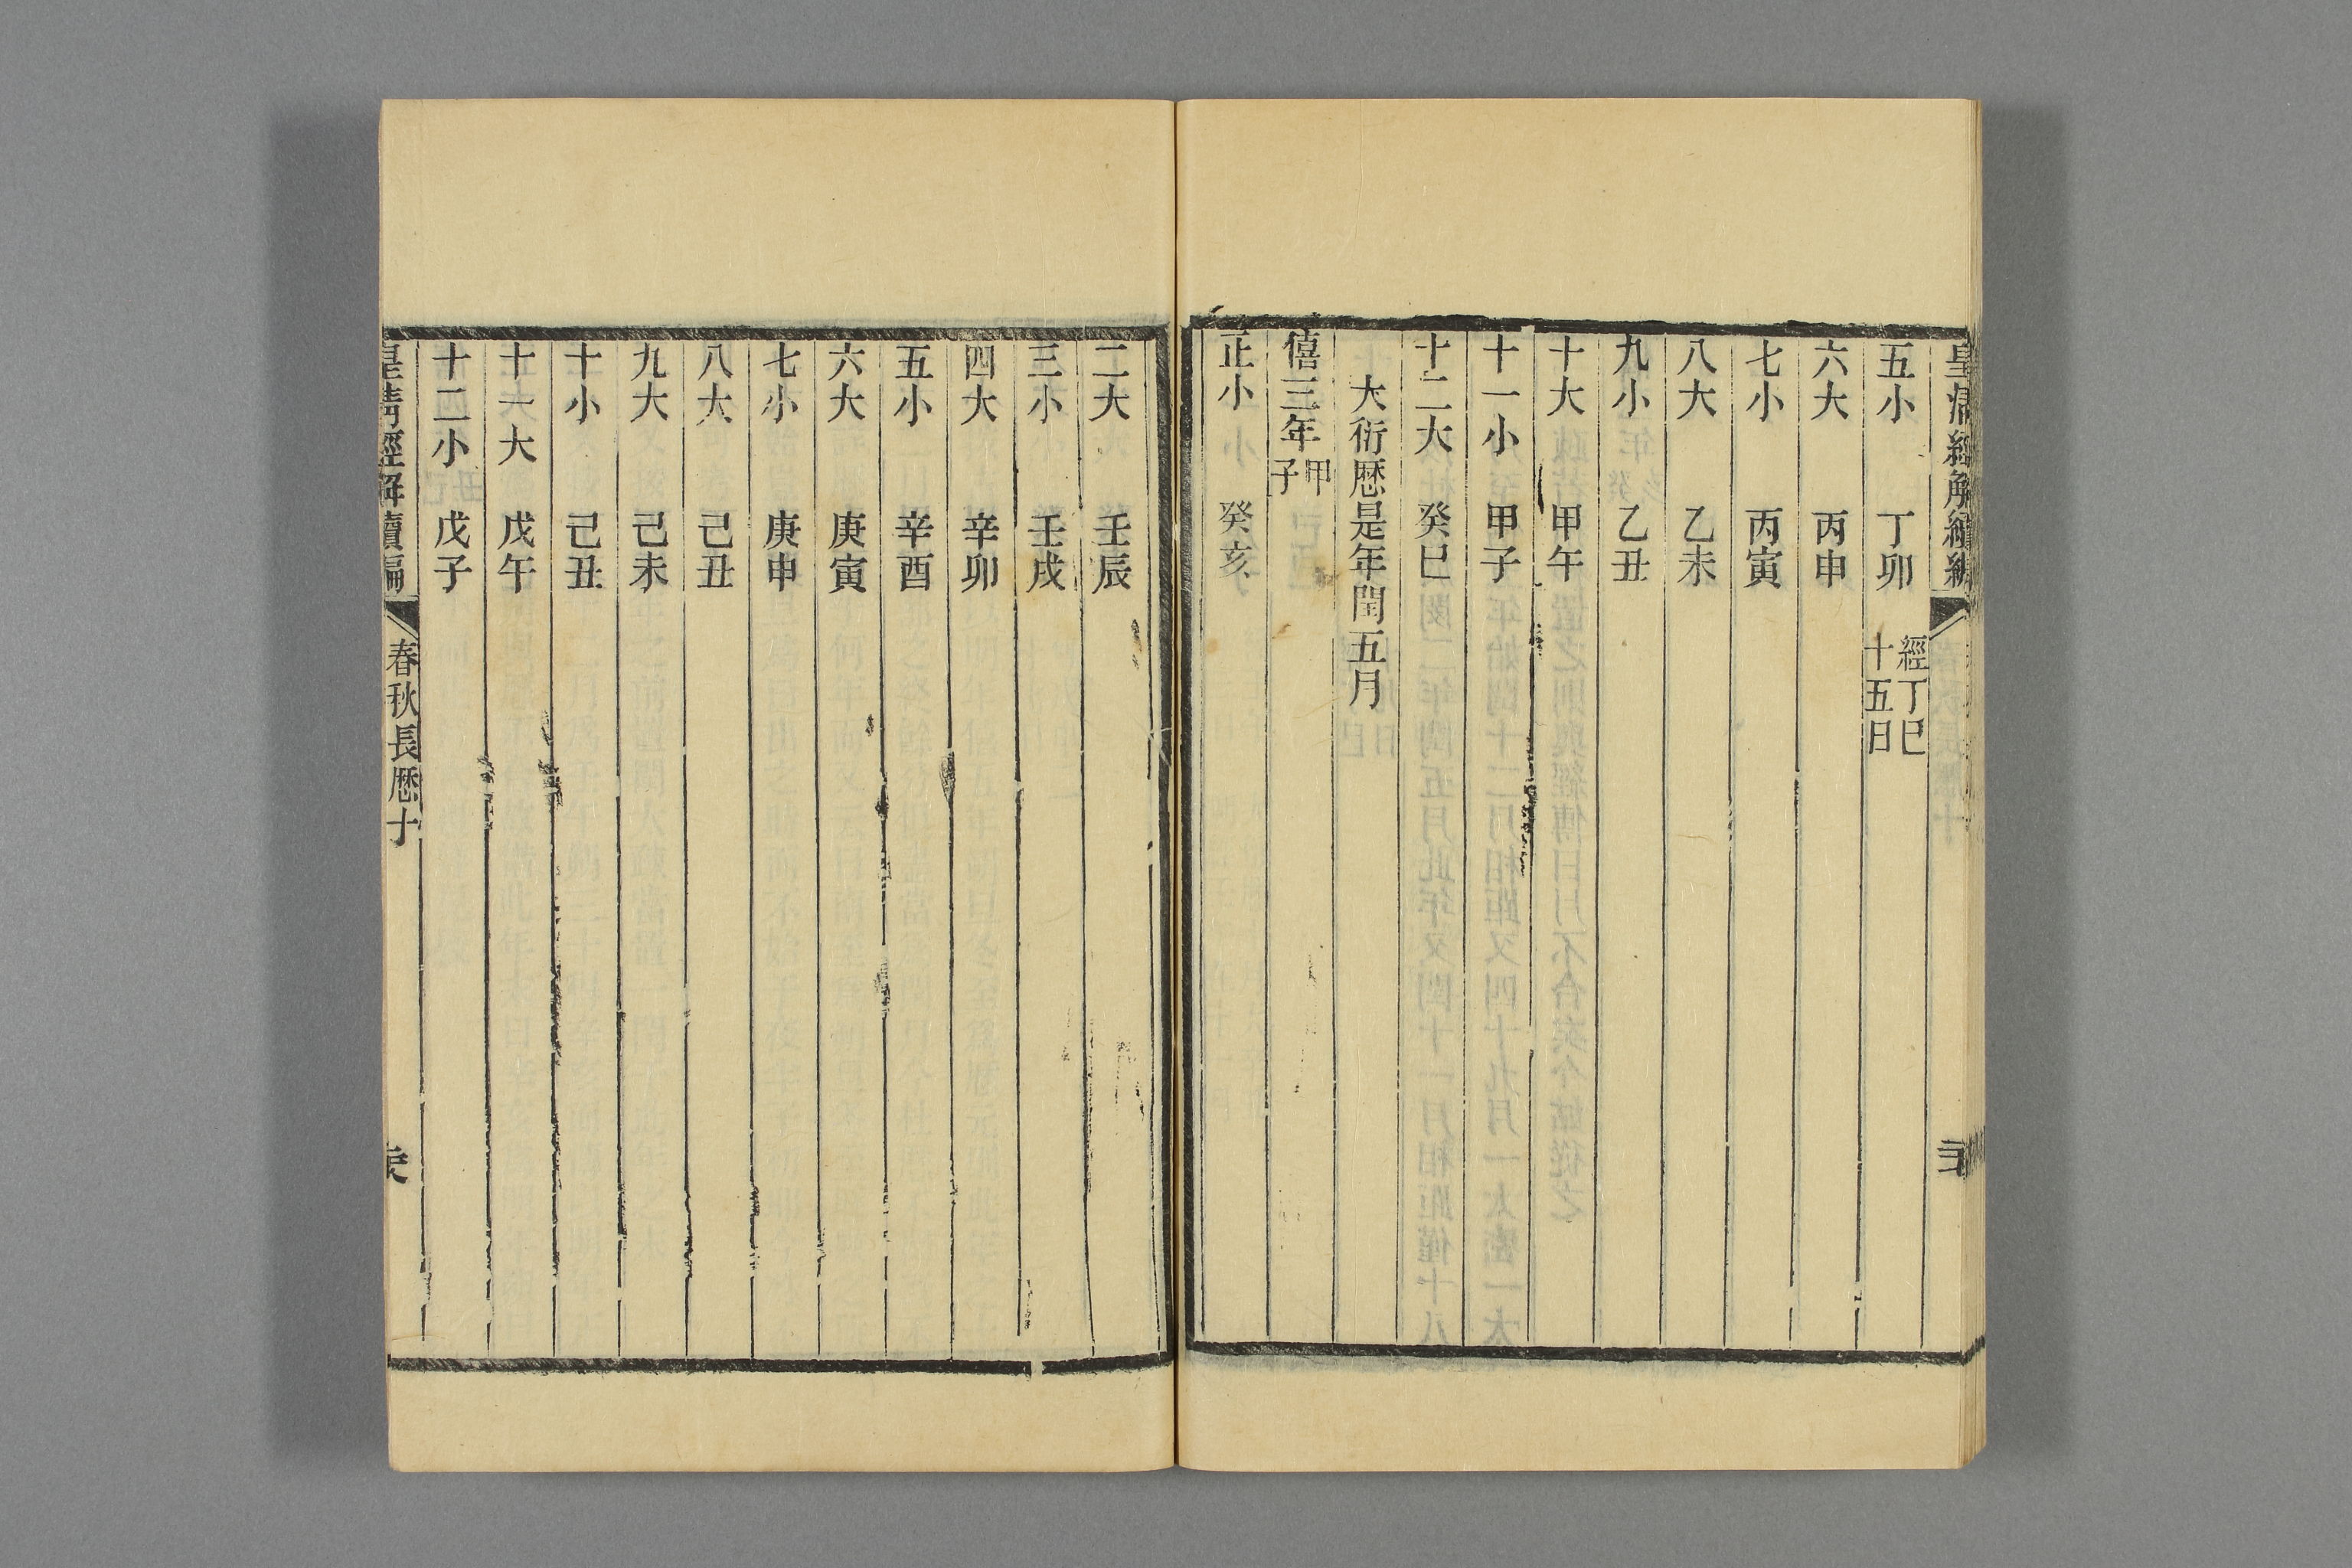 皇清經解續編
五小 丁卯 經丁巳十五日
六大 丙申
七小 丙寅
八大 乙未
九小 乙丑
十大 甲午
十一小 甲子
十二大 癸巳
大衍厯是年閏五月
僖三年甲子
正小 癸亥
二大 壬辰
三小 壬戌
四大 辛卯
五小 辛酉
六大 庚寅
七小 庚申
八大 己丑
九大 己未
十小 己丑
十一大 戊午
十二小 戊子
皇清經解續編 春秋長厯十